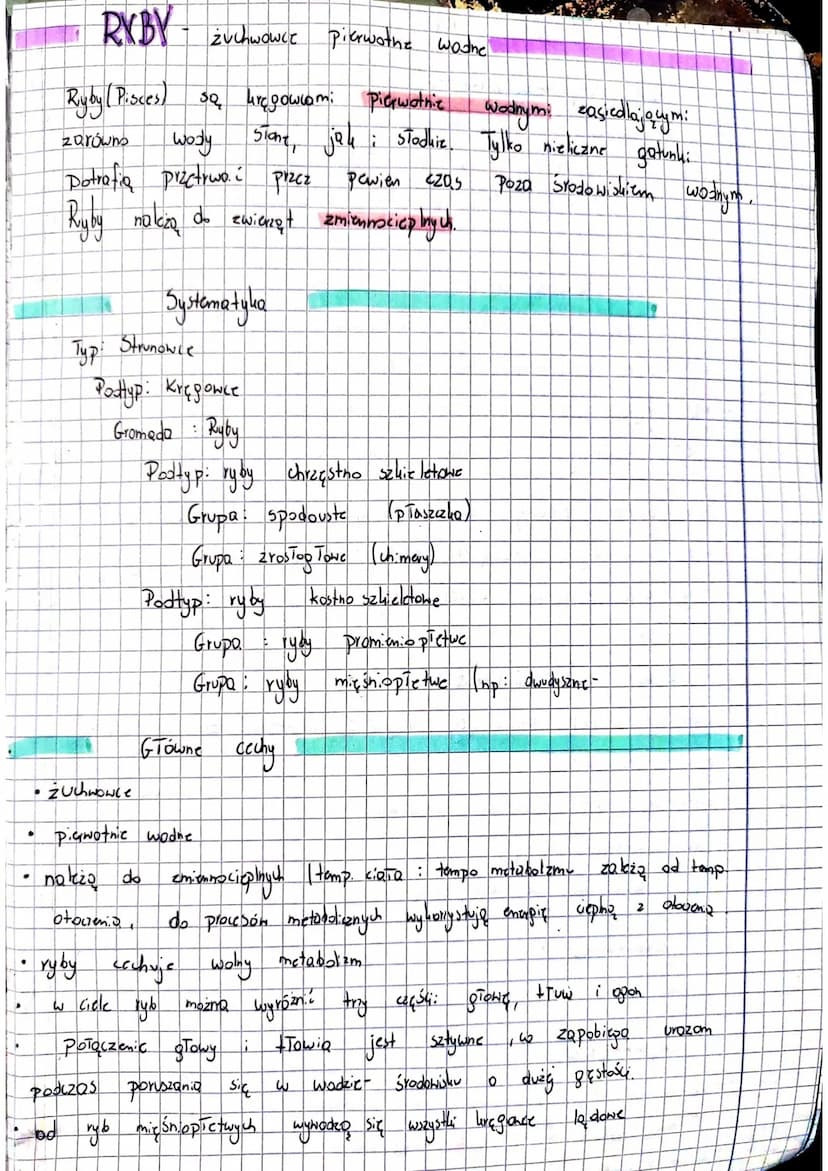 RYBY - żuchwowce pierwotne wodne
Ryby (Pisces) są kręgowcami pierwotnie wodnymi zasiedlającymi
zarówno wody słone, jak i słodkie. Tylko nieliczne gatunki
potrafią przetrwać przez pewien czas poza środowiskiem wodnym.
Ryby należą do zwierząt zmiennocieplnych.
Systematyka
Typ: Strunowce
Podtyp: Kręgowce
Gromada : Ryby
Podtyp: ryby chrzęstno szkieletowe
Grupa: spodouste (płaszczka)
Grupa: zrosłogłowe (chimery)
Podtyp: ryby kostno szkieletowe
Grupa : ryby promieniopłetwe
Grupa: ryby mięśniopłetwe (np: dwudyszne-
Główne cechy
• żuchwowce
• pierwotnie wodne
• należą do zmiennocieplnych (temp. ciała i tempo metabolizmu zależą od temp.
otoczenia, do procesów metabolicznych wykorzystują energię cieplną z otoczenia.
• ryby cechuje wolny metabolizm
• w ciele ryb można wyróżnić trzy części: głowę, tłów i ogon
• Połączenie głowy i tłowia jest sztywne, co zapobiega urazom
podczas poruszania się w wodzie- środowisku o dużej gęstości.
• od ryb mięśniopłetwych wywodzą się wszystkie kręgowce lądowe